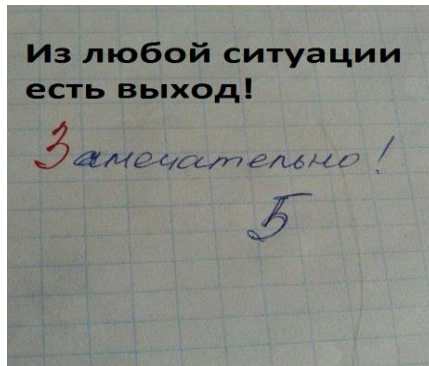 Из любой ситуации
есть выход!
Замечательно!
5